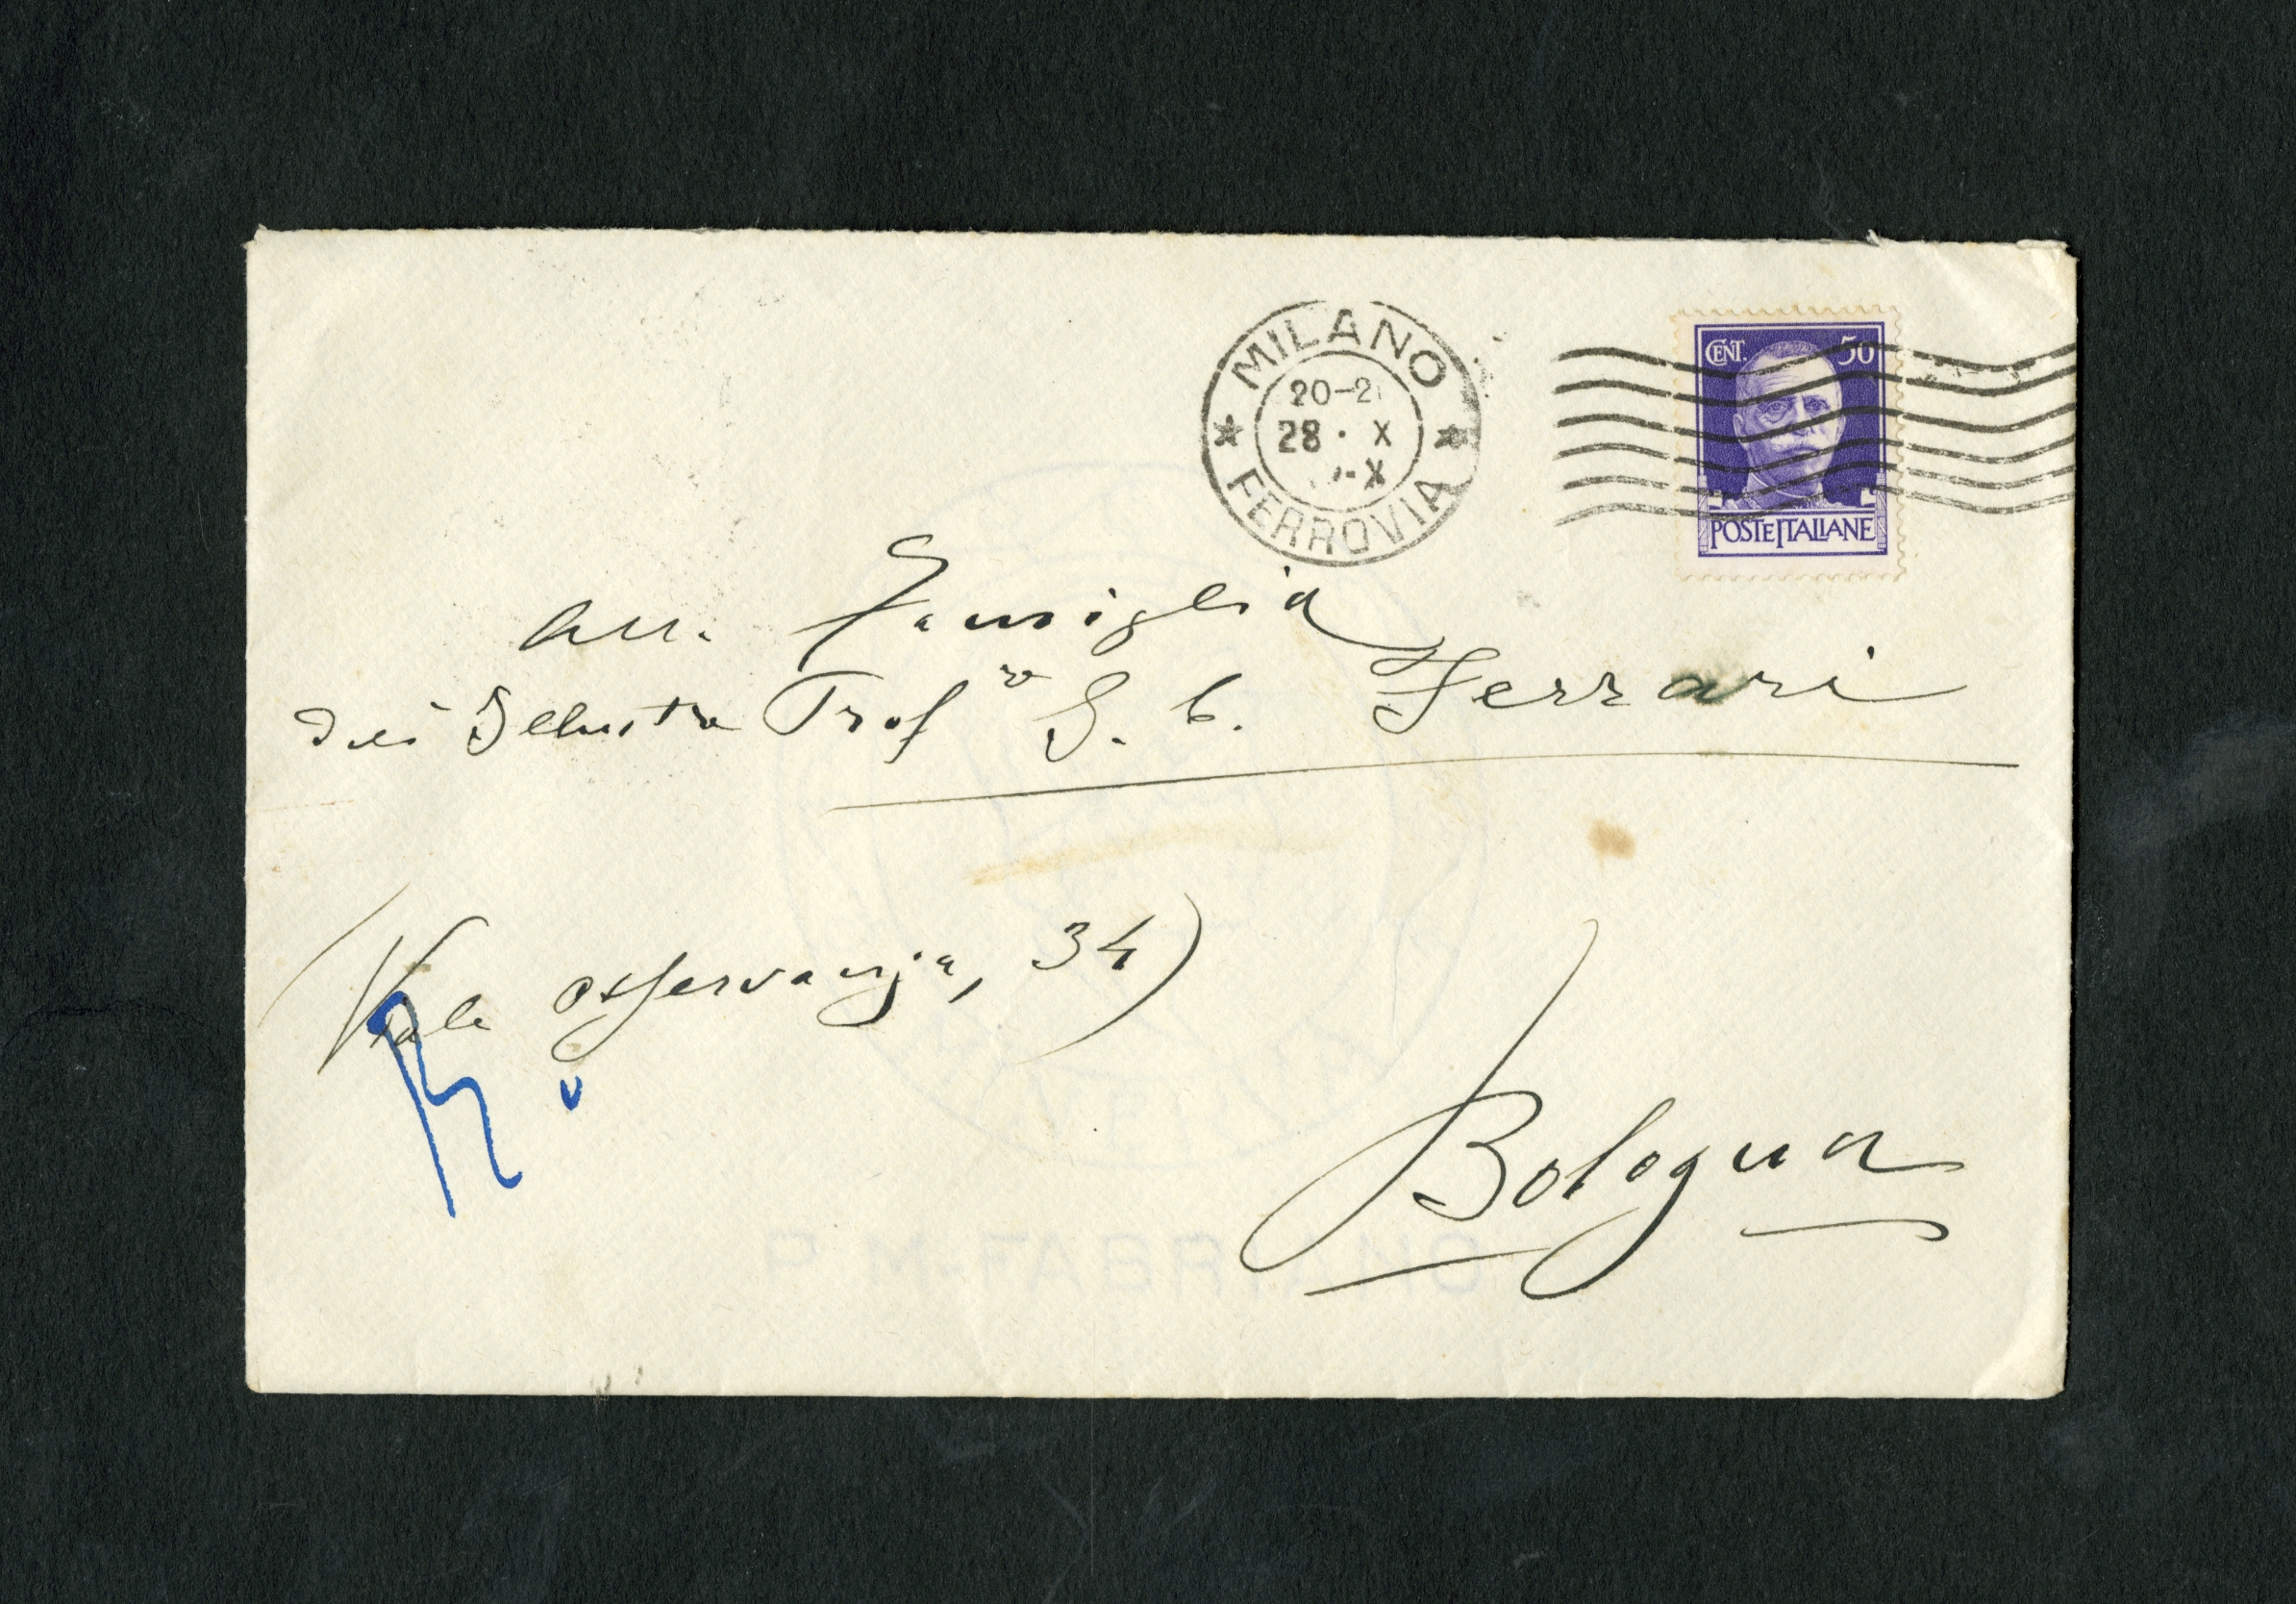 MILANO
20-2
28 · X
-X
FERROVIA
CENT. 50
POSTE ITALIANE
Alla Famiglia
Dell' Illustre Prof re G. C. Ferrari
(Viale Osservanza, 34)
Bologna